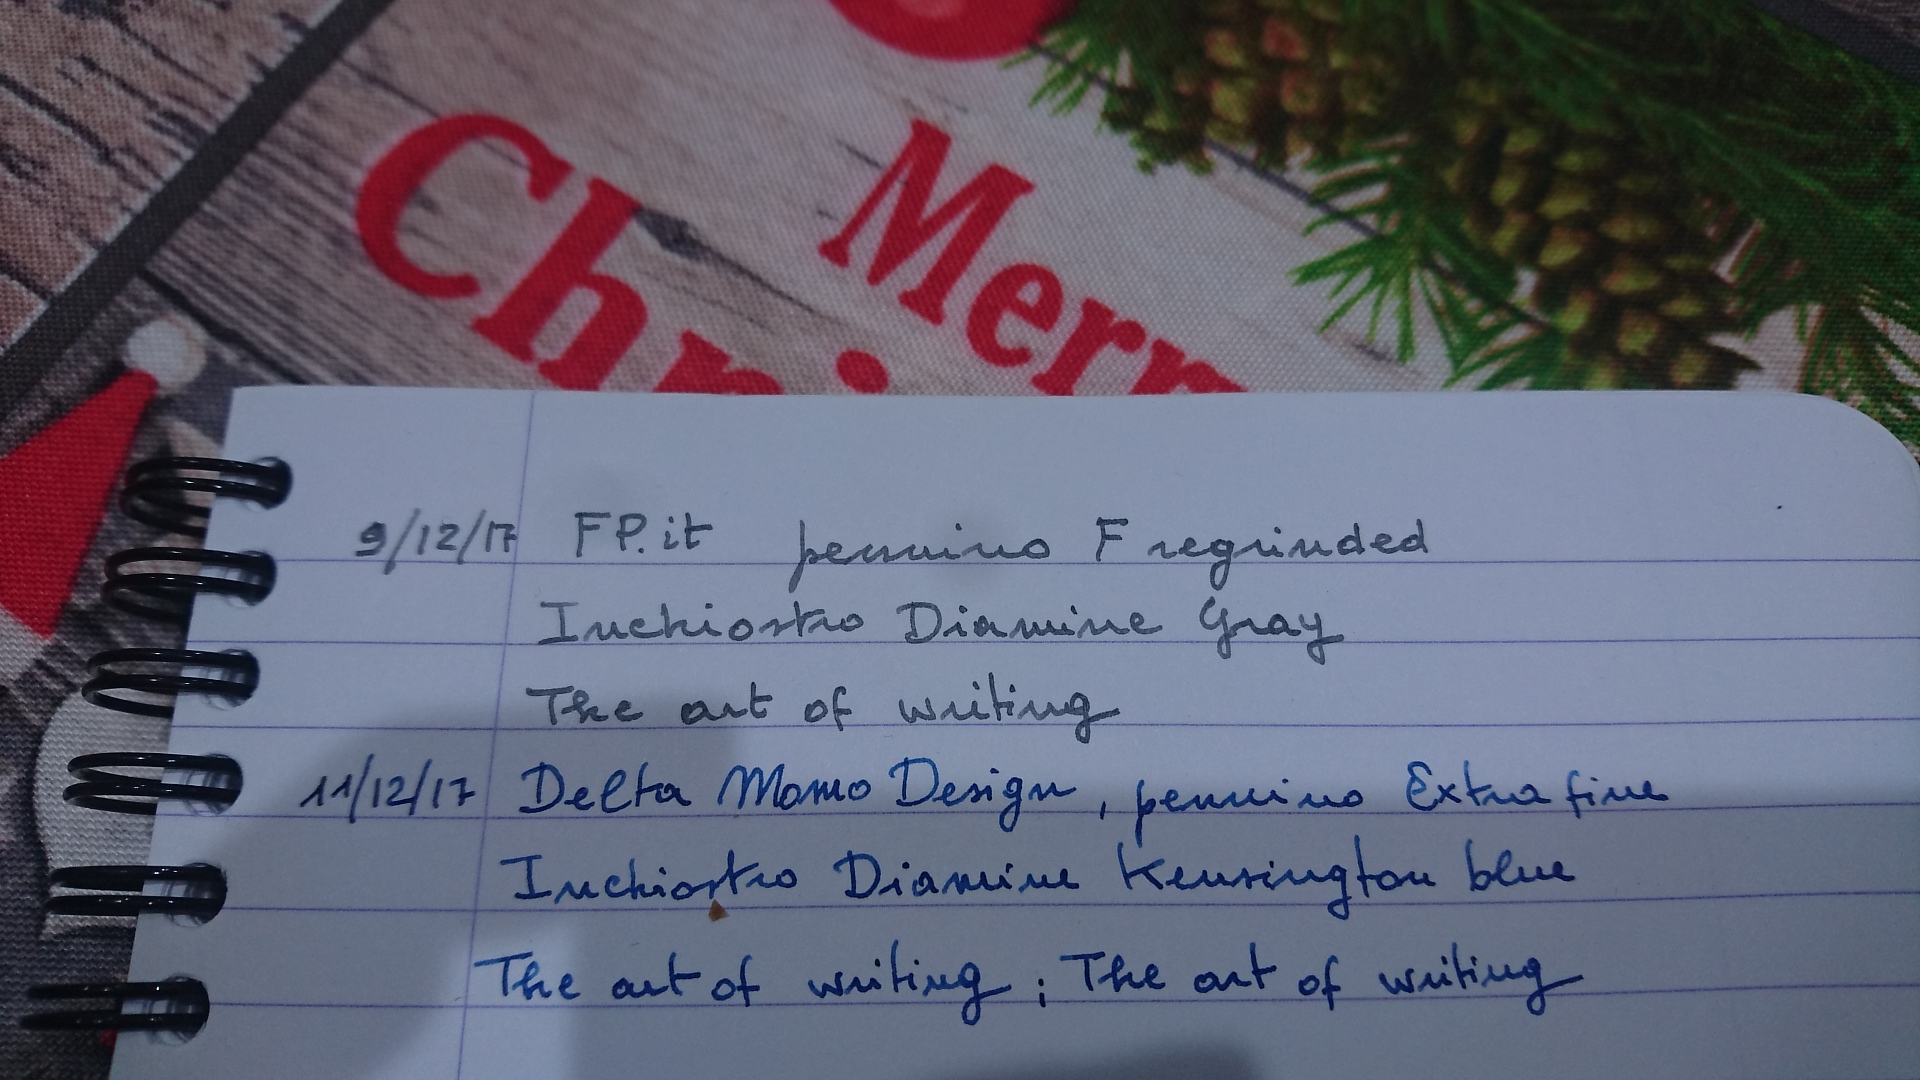 Merr
Chri
9/12/17 FP.it pennino F regrinded
Inchiostro Diamine Gray
The art of writing
11/12/17 Delta Momo Design, pennino Extra fine
Inchiostro Diamine Kensington blue
The art of writing ; The art of writing